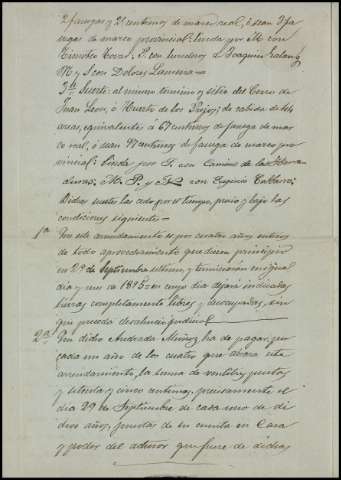 2 fanegas y 21 centimos de marco real, ó sean 3 fa-
negas de marco provincial: linda por M. con
Timoteo P. con herederos de Joaquin Galan y
N. y S. con Dolores
3ª Suerte: al mismo termino y sitio del Cerro de
Juan Leon, ó Huerto de los de cabida de 44
areas, equivalentes á 67 centimos de fanega de mar-
co real, ó sean 97 centimos de fanega de marco pro-
vincial: linda por S. con Camino de la
M. P. y con Eugenio
Dichas suertes las cedo por el tiempo, precio y bajo las
condiciones siguientes =
1ª Que este arrendamiento es por cuatro años enteros
de todo aprovechamiento que dieron principio
en 29 de Septiembre ultimo, y terminarán en igual
dia y mes de 1895 = en cuyo dia dejará indicadas
tierras completamente libres y desocupadas, sin
que preceda desahucio judicial
2ª Que dicho Andrada Muñoz ha de pagar por
cada un año de los cuatro que abraza este
arrendamiento, la suma de pesetas
y setenta y cinco centimos, precisamente el
dia 29 de Septiembre de cada uno de di-
chos años, puestas de su cuenta en Casa
y poder del que fuere de dichas